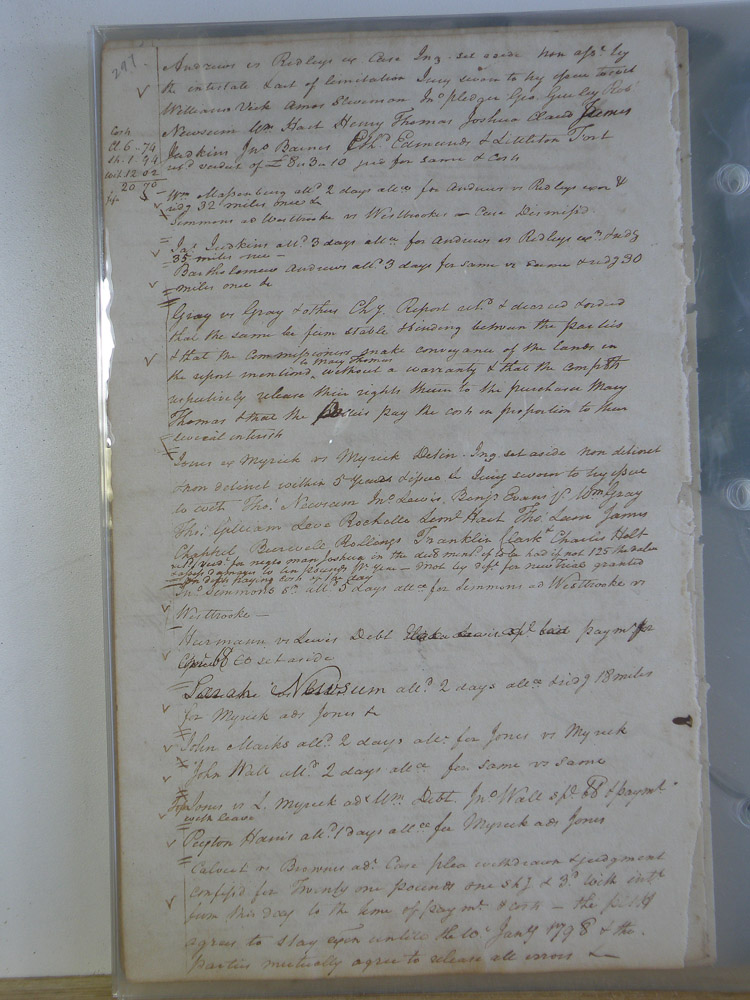 291
Andrews vs Ridleys ex Case Inq. set aside non asst by
the intestate & act of limitation Jury sworn to try issue towit
William Vick Amos Stevenson Jno pledger Geo. Gurley Rob
Newsum Wm Hart Henry Thomas Joshua Claud James
Judkins Jno Barnes Ethd Edmunds & Littleton Fort
retd verdict of £8..3..10 jud for same & costs
Costs
Cl. 6-74
Sh. 1-94
wit. 12 02
20 70
Wm Massenburg alld 2 days attce for Andrews vs Ridleys exor &
ridg 32 miles once &c
Simmons ad Westbrooke vs Westbrooke Case Dismissd
Jas Judkins alld 3 days attce for Andrews vs Ridleys exr & ridg
35 miles once
Bartholomew Andrews alld 3 days for same vs same & ridg 30
miles once &c
Gray vs Gray & others Chy. Report retd & decreed & ordered
that the same be firm & stable & binding between the parties
& that the Commissioners make conveyance of the lands in
to Mary Thomas
the report mentiond without a warranty & that the complts
respectively release their rights therein to the purchaser Mary
Thomas & that the parties pay the costs in proportion to their
several interests
Jones ex Myrick vs Myrick Detin. Inq. set aside non detinet
& non detinet within 5 years & issue &c Jury sworn to try issue
to wit Thos Newsum Jno Lewis, Benja Evans Wm Gray
Thos Gilliam Levi Rochelle Leml Hart Thos Lain James
Chappel Burwell Rollings Franklin Clark Charles Holt
retd verdt for negro man Joshua in the decl mentd if to be had if not 125 the value
& assess damages to ten pounds pr year motn by deft for new trial granted
on deft paying costs of the day
Jno Simmons alld 5 days attce for Simmons ad Westbrooke vs
Westbrooke
Hermann vs Lewis Debt paymt for
set aside
Sarah Newsum alld 2 days attce & ridg 18 miles
for Myrick ads Jones &c
John Marks alld 2 days attce for Jones vs Myrick
John Wall alld 2 days attce for same vs same
Jones vs L. Myrick adx Wm. Debt. Jno Wall spl bl & paymt
with leave
Peyton Harris alld days attce for Myrick ads Jones
Calvert vs Brownes adr Case plea withdrawn & judgment
confessd for Twenty one pounds one shg & 3d with intt
from this day to the time of paymt & costs — the pltf
agrees to stay exon untill the 10 Jany 1798 & the
parties mutually agree to release all errors &c